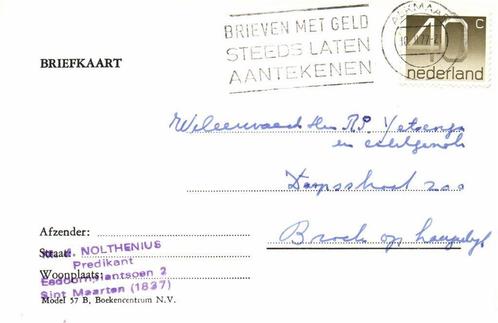 BRIEVEN MET GELD
STEEDS LATEN
AANTEKENEN
ALKMAAR
40 c
nederland
BRIEFKAART
en echtgenote
Dorpsstraat 200
Broek op Langedijk
Afzender:
Straat:
NOLTHENIUS
Predikant
Woonplaats:
2
Sint Maarten (1837)
Model 57 B, Boekencentrum N.V.